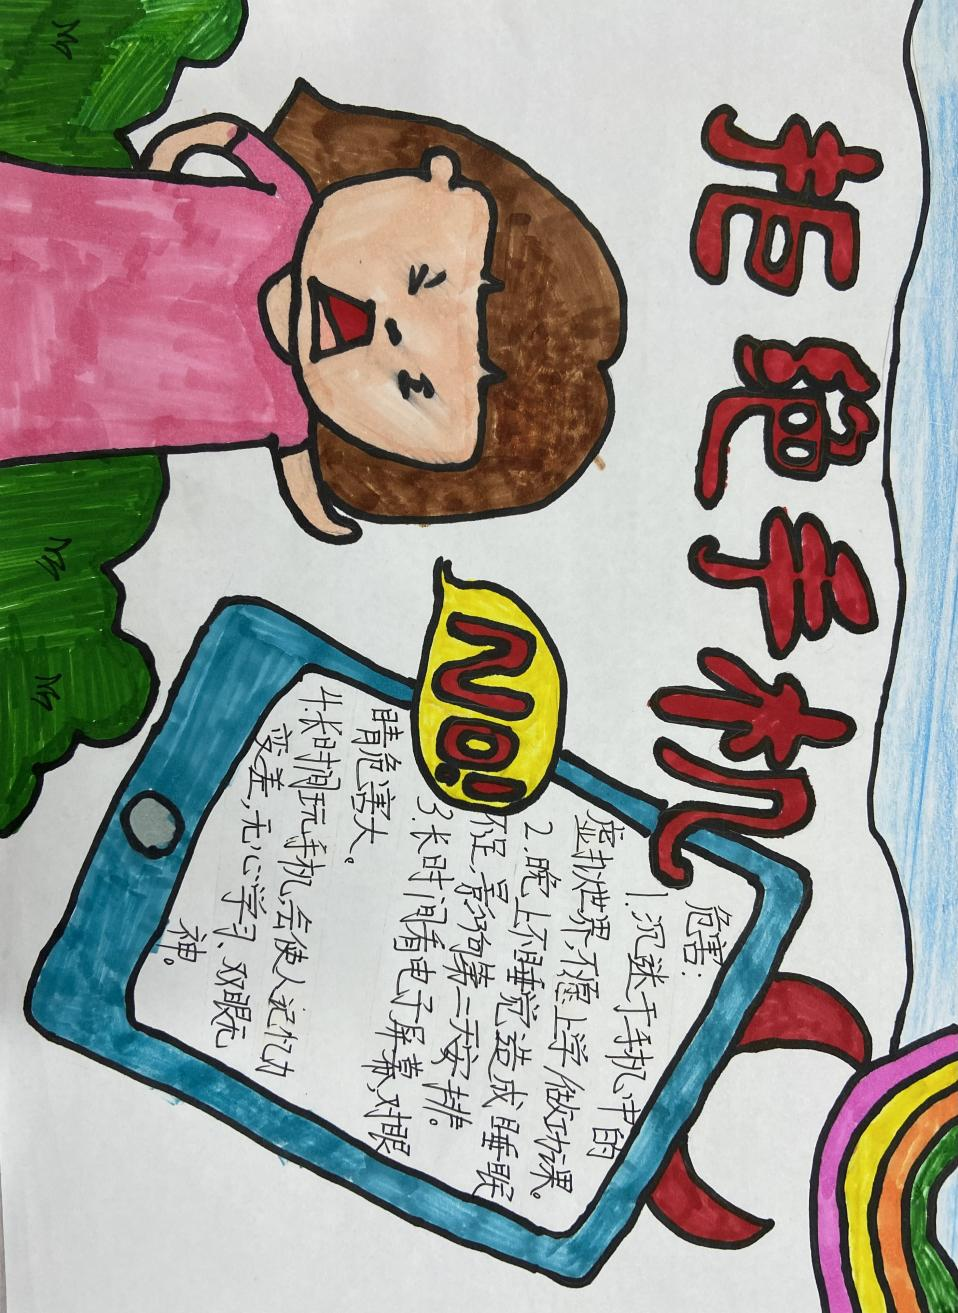 拒绝手机
NO!
危害:
1.沉迷于手机中的
虚拟世界,不愿上学/做功课。
2.晚上不睡觉造成睡眠
不足,影响第二天安排。
3.长时间看电子屏幕,对眼
睛危害大。
4.长时间玩手机,会使人记忆力
变差,无心学习、双眼无
神。